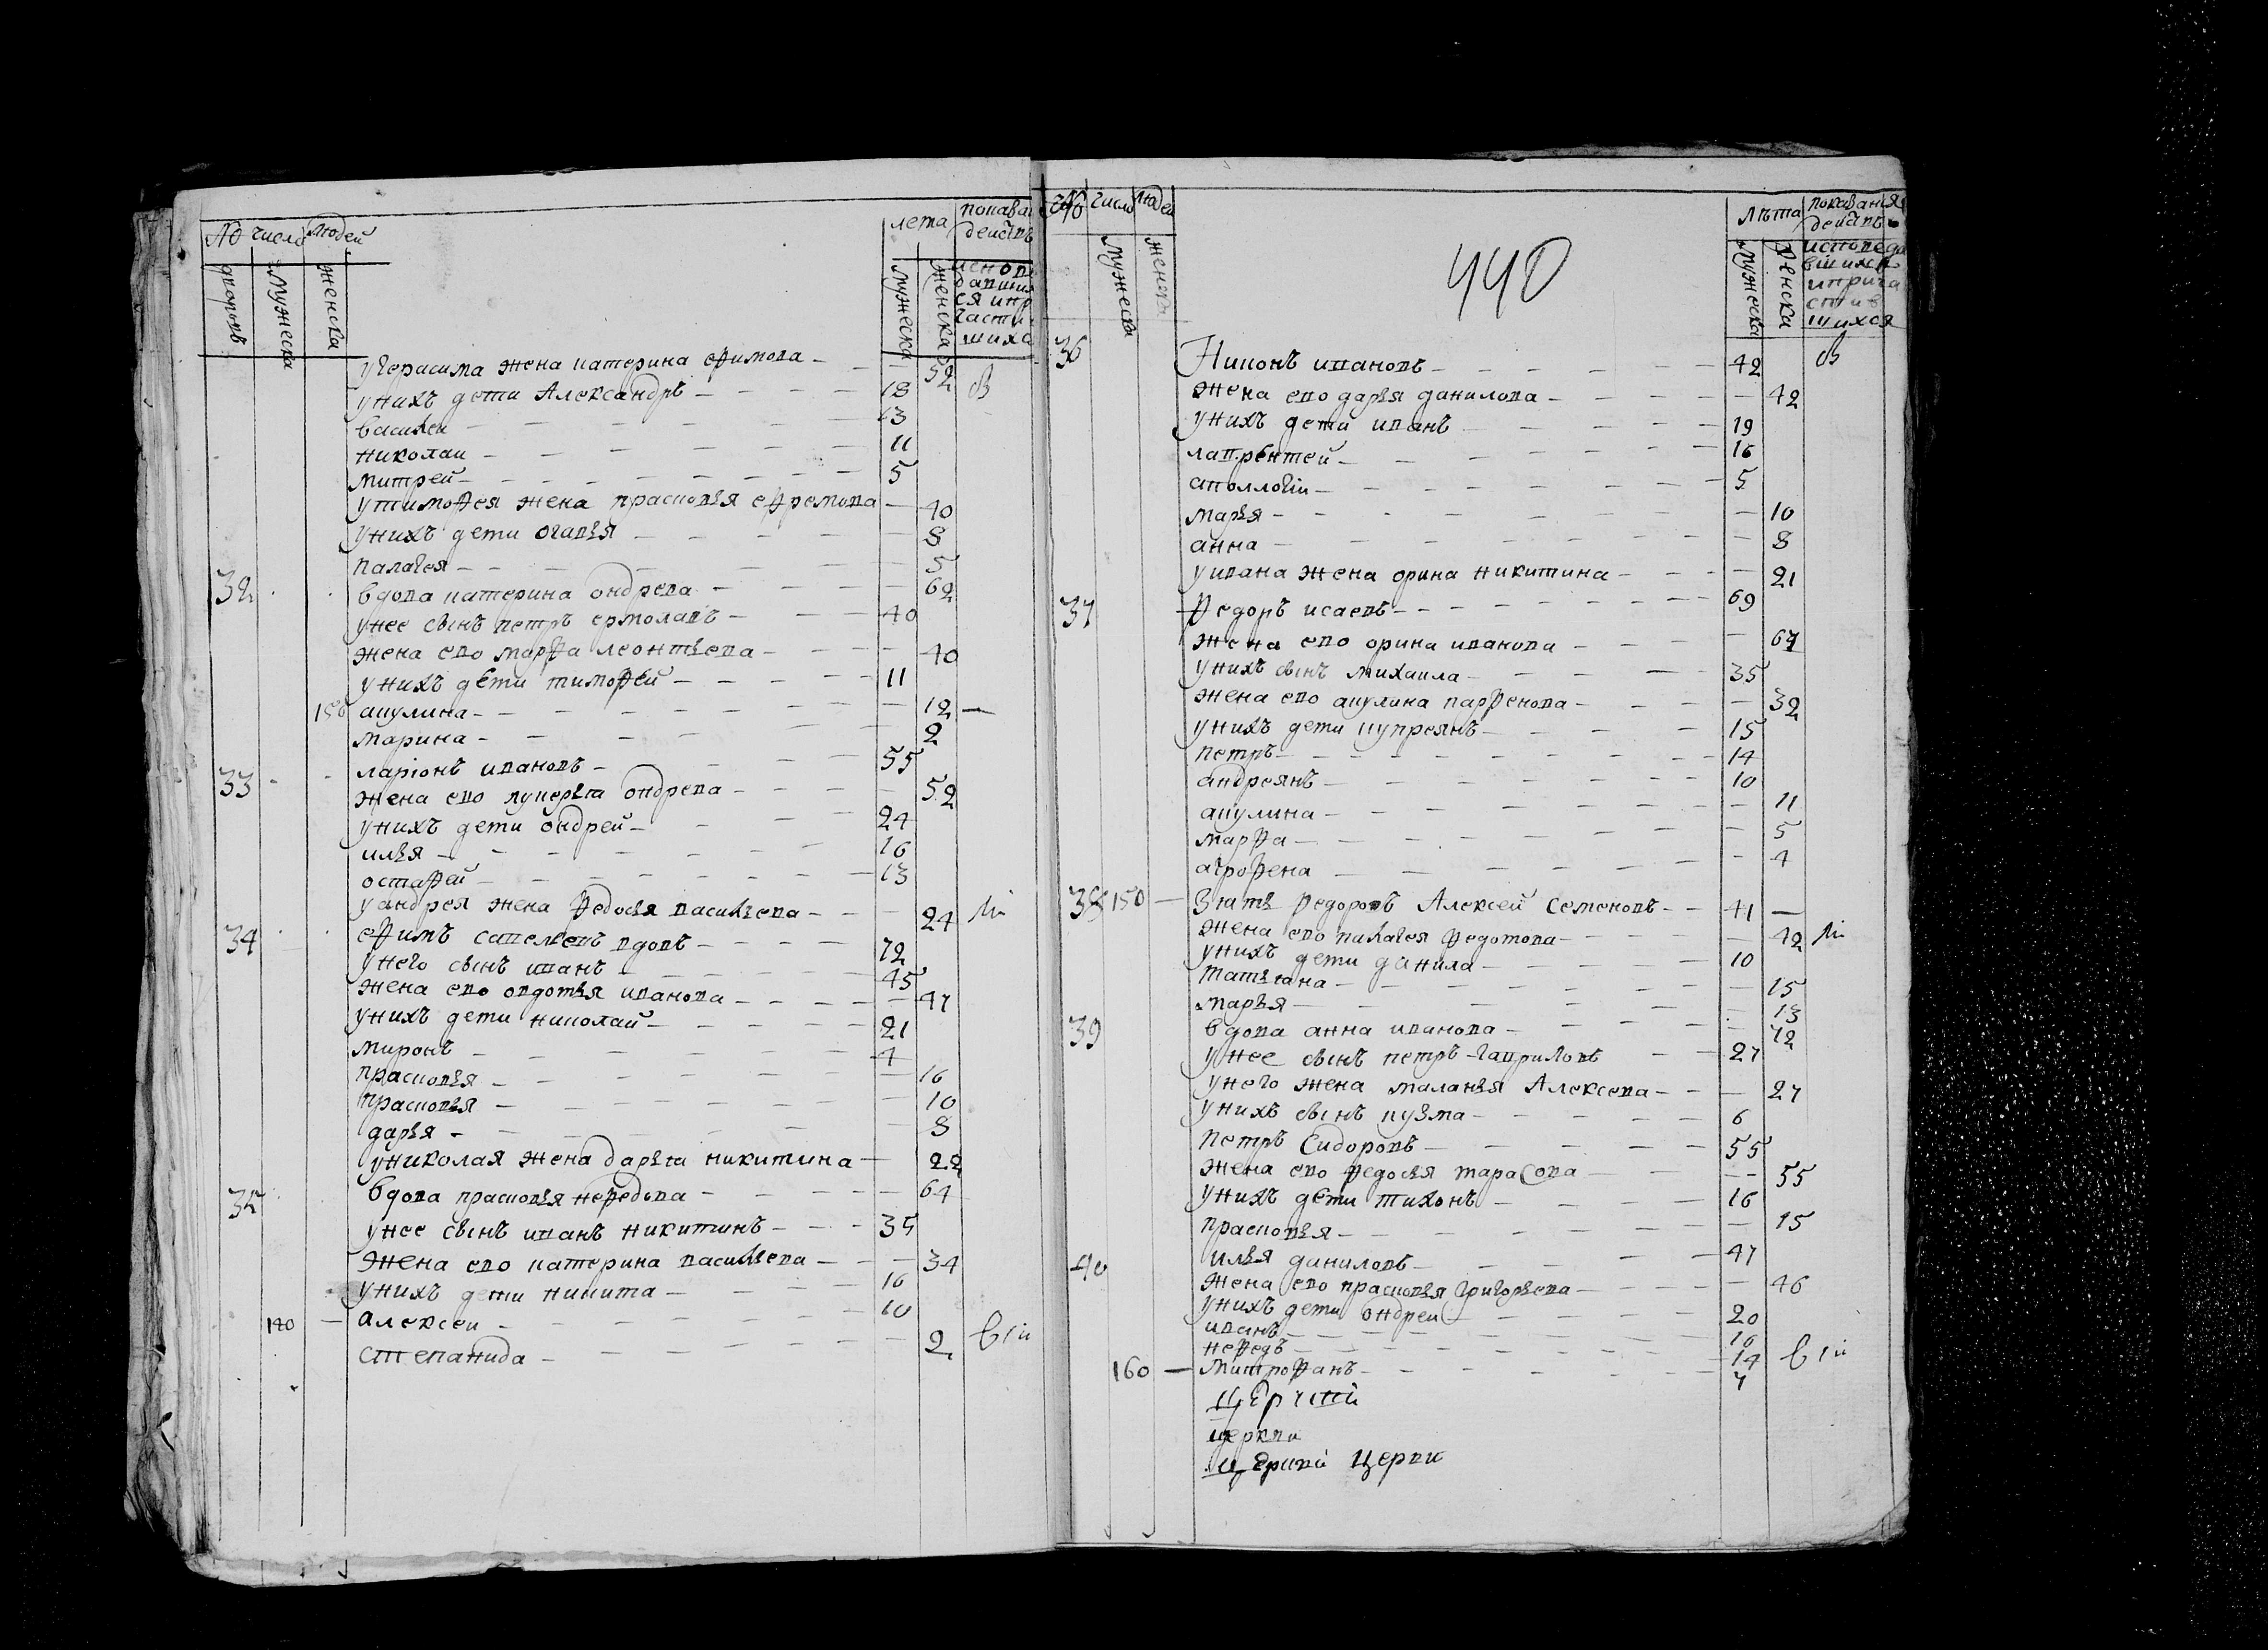 № число людей лета показа
действ
дворовъ мужеска женска мужеска женска испове
давших
ся и пр
части
шихс
у герасима жена катерина ефимова 52 в
у нихъ дети Александръ 18
василеи 13
николаи 11
митрей 5
у тимофея жена прасковья ефремова 40
у нихъ дети огавья 8
палагея 5
32 вдова катерина ондрева 62
у нее сынъ петръ ермолавъ 40
жена ево марфа леонтьева 40
у нихъ дети тимофей 11
150 акулина 12
марина 2
33 ларионъ ивановъ 55
жена ево лукерья ондрева 52
у нихъ дети ондрей 24
илья 16
остафей 13
у андрея жена федосья васильева 24
34 ефимъ савельевъ вдовъ 72
у него сынъ иванъ 45
жена ево овдотья иванова 47
у нихъ дети николай 21
миронъ 4
прасковья 16
прасковья 10
дарья 8
у николая жена дарья никитина 22
35 вдова прасковья нефедова 64
у нее сынъ иванъ никитинъ 35
жена ево катерина васильева 34
у нихъ дети никита 16
140 алексеи 10
степанида 2
№ число людей 440 лѣта показания
действъ
мужеска женска мужеска женска исповеда
вшихся
и прича
стив
шихся
36 Никонъ ивановъ 42 в
жена ево дарья данилова 42
у нихъ дети иванъ 19
лаврентей 16
аполлоги 5
марья 10
анна 8
у ивана жена орина никитина 21
37 Федоръ исаевъ 69
жена ево орина иванова 67
у нихъ сынъ михаила 35
жена ево акулина парфенова 32
у нихъ дети купреянъ 15
петръ 14
андреянъ 10
акулина 11
марфа 5
агрофена 4
38 150 Зять федоровъ Алексей Семеновъ 41
жена ево палагея федотова 42
у нихъ дети данила 10
татьяна 15
марья 13
39 вдова анна иванова 72
у нее сынъ петръ гавриловъ 27
у него жена маланья Алексева 27
у нихъ сынъ кузма 6
петръ Сидоровъ 55
жена ево федосья тарасова 55
у нихъ дети тихонъ 16
прасковья 15
40 илья даниловъ 47
жена ево прасковья григорьева 46
у нихъ дети ондреи 20
иванъ 16
нефедъ 14
160 митрофанъ 7
церкви
церкви